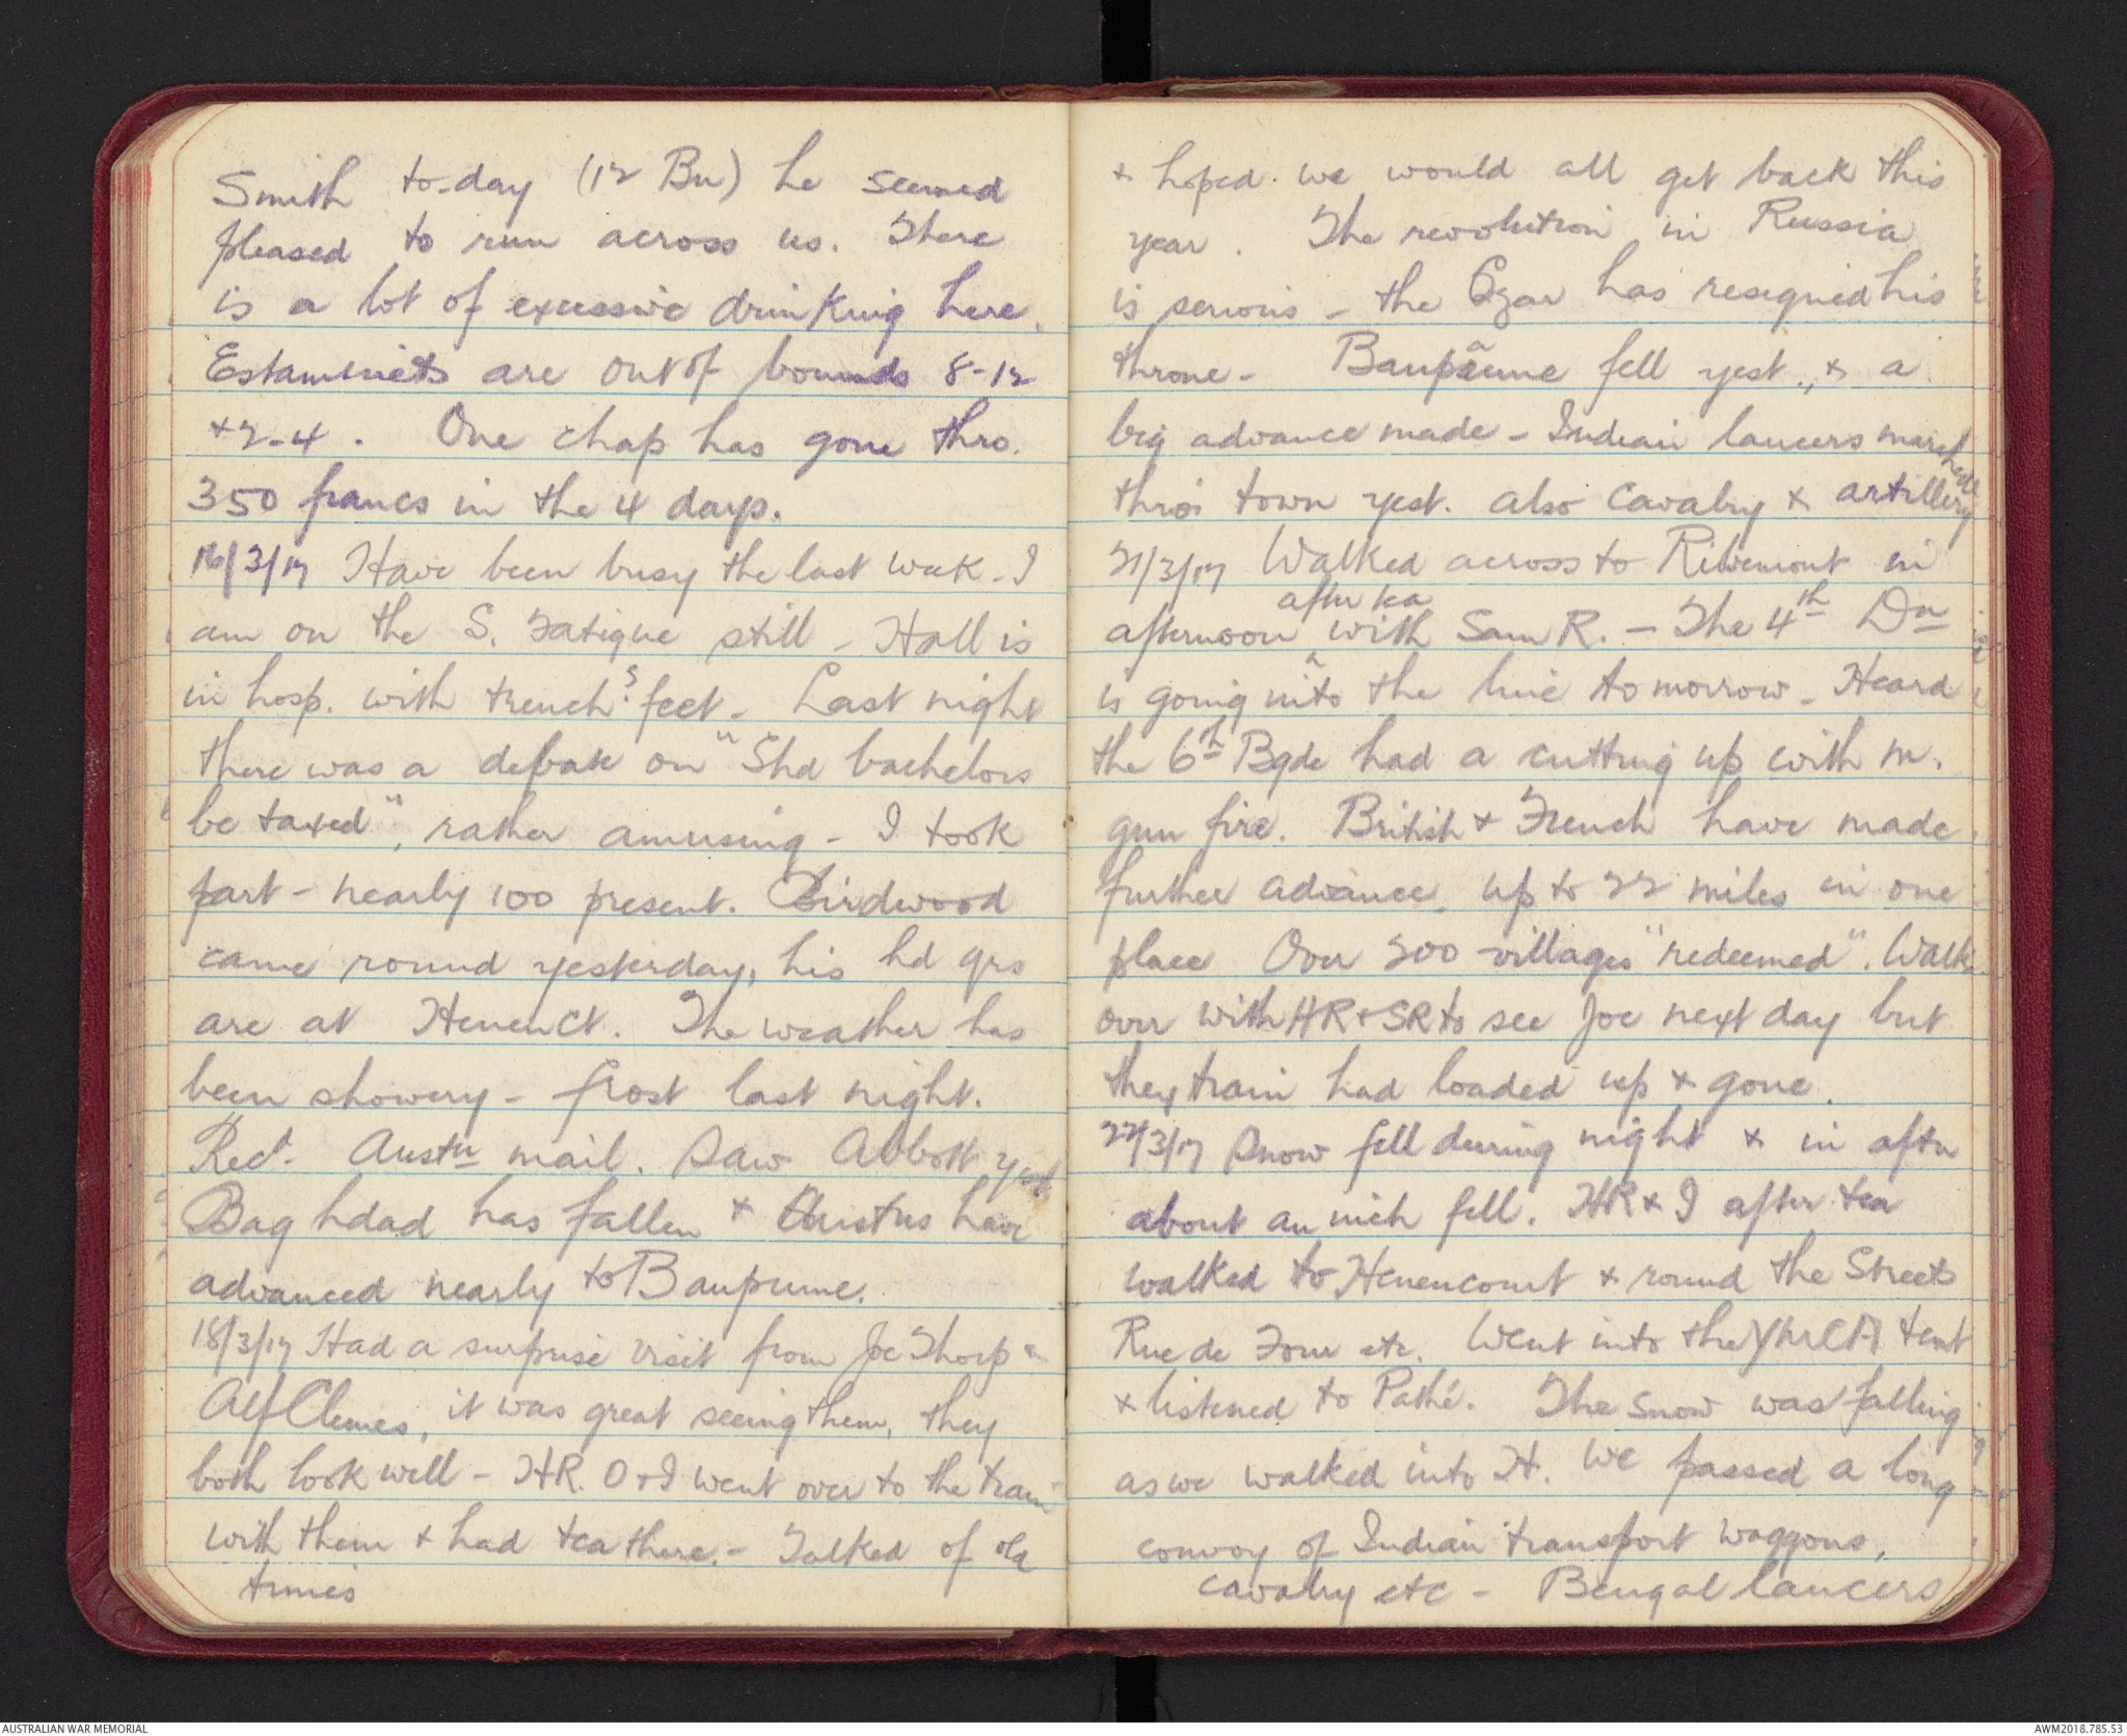 Smith to-day (12 Bn) he seemed
pleased to run across us. There
is a lot of excessive drinking here.
Estaminets are out of bounds 8-12
+ 2-4. One chap has gone thro.
350 francs in the 4 days.
16/3/17 Have been busy the last week - I
am on the S. Fatigue still - Hall is
in hosp. with trench feet - Last night
there was a debate on "Shd bachelors
be taxed", rather amusing - I took
part - nearly 100 present. Birdwood
came round yesterday, his hd qrs
are at Henenct. The weather has
been showery - frost last night.
Recd. Austn mail. Saw Abbott yest
Baghdad has fallen + Austns have
advanced nearly to Baupume.
18/3/17 Had a surprise visit from Joe Thorp +
Alf Clemes, it was great seeing them, they
both look well - HR. O + I went over to the train
with them + had tea there. - Talked of old
times
+ hoped we would all get back this
year. The revolution in Russia
is serious - the Czar has resigned his
throne - Baupaume fell yest., + a
big advance made - Indian lancers marched
thro' town yest. also Cavalry + artillery
21/3/17 Walked across to Ribemont in
after tea
afternoon with Sam R. - The 4th Dn
is going into the line tomorrow - Heard
the 6th Bgde had a cutting up with m.
gun fire. British + French have made
further advance, up to 22 miles in one
place Over 200 villages "redeemed". Walk
over with HR + SR to see Joe next day but
they train had loaded up + gone.
22/3/17 Snow fell during night + in aftn
about an inch fell. HR + I after tea
walked to Henencourt + round the Streets
Rue de Four etc. Went into the YMCA tent
+ listened to Pathé. The snow was falling
as we walked into H. We passed a long
convoy of Indian transport waggons,
cavalry etc - Bengal lancers
AUSTRALIAN WAR MEMORIAL
AWM2018.785.53